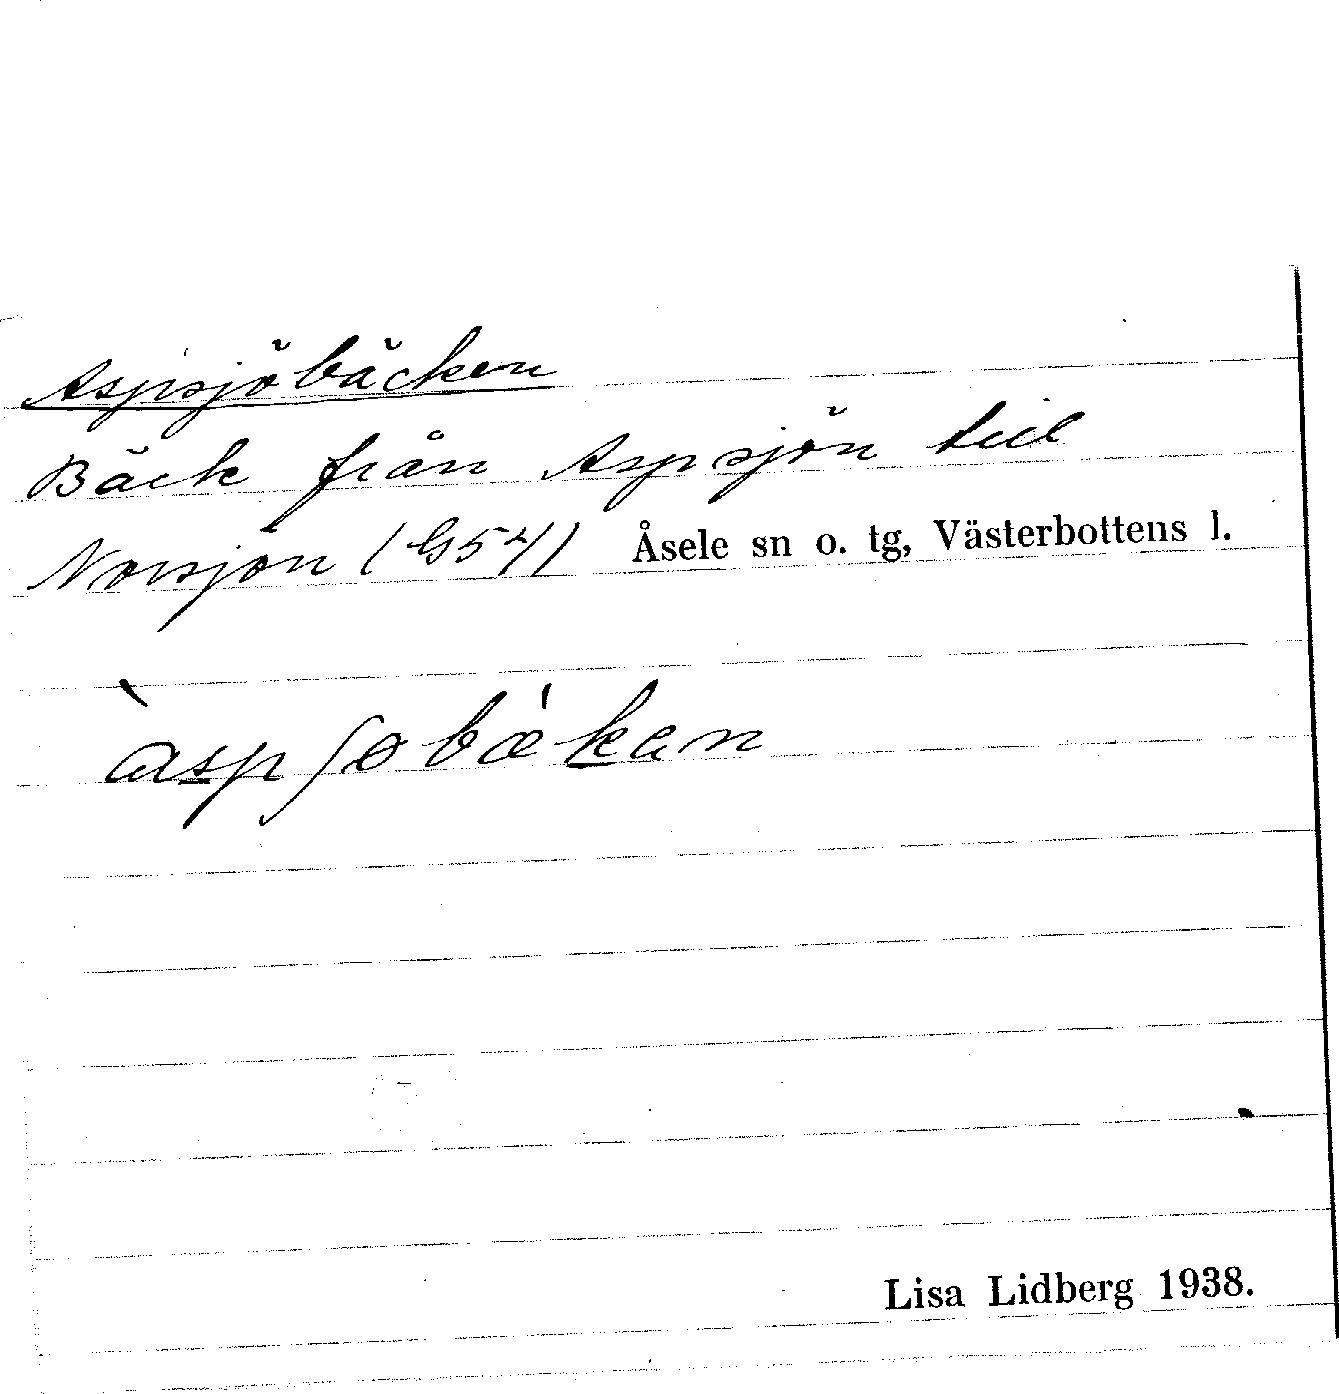 Aspsjöbäcken
Bäck från Aspsjön till
Norsjön (G54) Åsele sn o. tg, Västerbottens l.
àspʃobæ̍kan
Lisa Lidberg 1938.